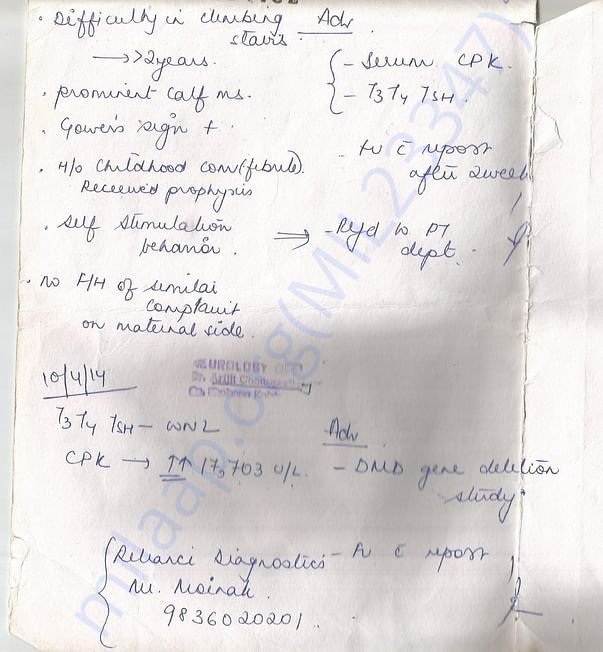 . Difficulty in climbing
stairs.
→ >2years.
. prominent calf ms.
. Gower's sign +
. H/o childhood conv (febrile).
Received prophyxis
. self stimulation
behavior.
. no F/H of similar
complaint
on maternal side.
Adv
- Serum CPK.
- T3 T4 TSH.
fu c report
after 2week
⇒ - Refd to PT
dept.
10/4/14
NEUROLOGY OPD
T3 T4 TSH - WNL
CPK → ↑↑ 17,703 U/L.
Adv
- DMD gene deletion
study
- fu c report
Reliance Diagnostics
M. Mainak
9836020201.
milaap.org(MIL23347)